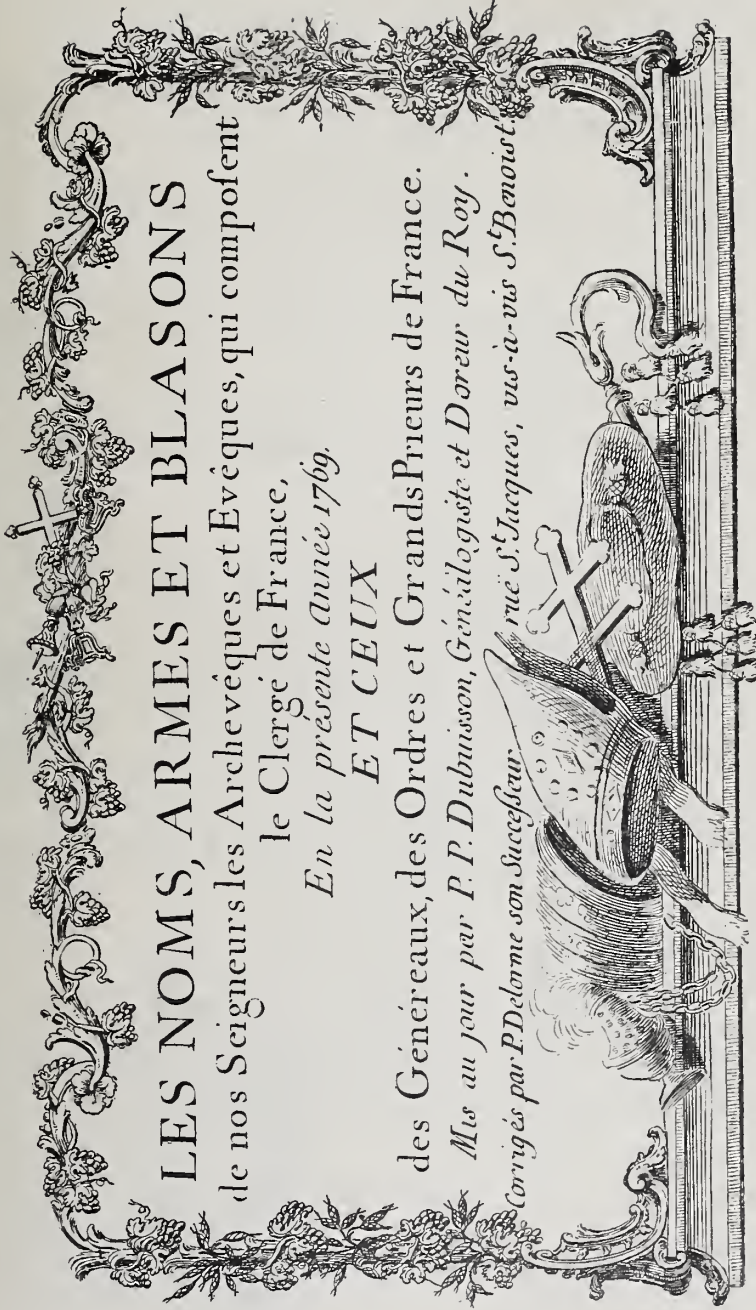 LES NOMS, ARMES ET BLASONS
de nos Seigneurs les Archevêques et Evêques, qui composent
le Clergé de France,
En la présente Année 1769.
ET CEUX
des Généreaux, des Ordres et Grands Prieurs de France.
Mis au jour par P. P. Dubuisson, Généalogiste et Doreur du Roy.
Corrigés par P. Delorme son Successeur ruë S.t Jacques, vis-à-vis S.t Benoist.